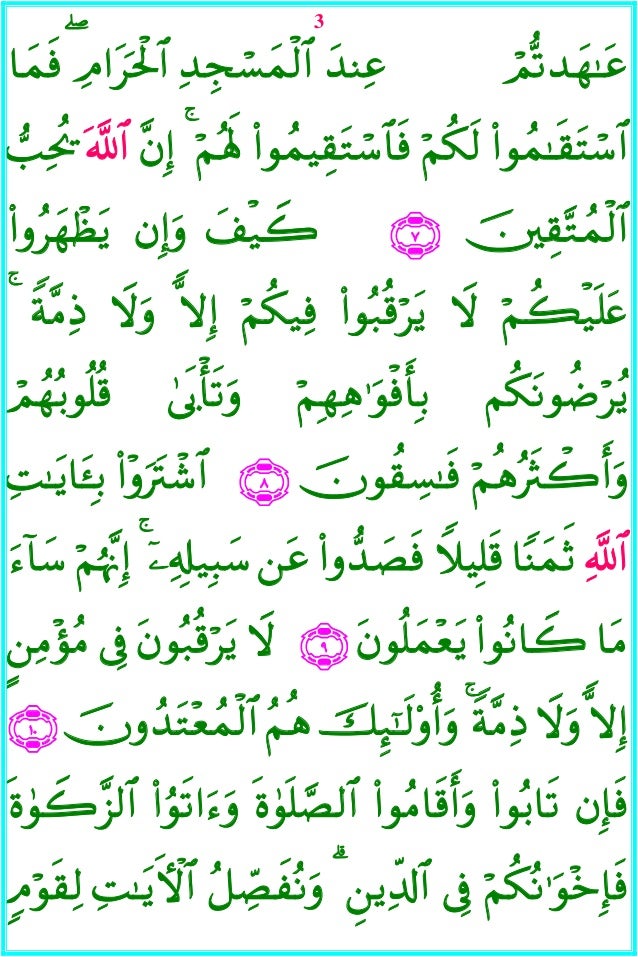 3
عَـٰهَدتُّمْ عِندَ ٱلْمَسْجِدِ ٱلْحَرَامِ ۖ فَمَا
ٱسْتَقَـٰمُوا۟ لَكُمْ فَٱسْتَقِيمُوا۟ لَهُمْ ۚ إِنَّ ٱللَّهَ يُحِبُّ
ٱلْمُتَّقِينَ ٧ كَيْفَ وَإِن يَظْهَرُوا۟
عَلَيْكُمْ لَا يَرْقُبُوا۟ فِيكُمْ إِلًّا وَلَا ذِمَّةً ۚ
يُرْضُونَكُم بِأَفْوَٰهِهِمْ وَتَأْبَىٰ قُلُوبُهُمْ
وَأَكْثَرُهُمْ فَـٰسِقُونَ ٨ ٱشْتَرَوْا۟ بِـَٔايَـٰتِ
ٱللَّهِ ثَمَنًا قَلِيلًا فَصَدُّوا۟ عَن سَبِيلِهِۦٓ ۚ إِنَّهُمْ سَآءَ
مَا كَانُوا۟ يَعْمَلُونَ ٩ لَا يَرْقُبُونَ فِى مُؤْمِنٍ
إِلًّا وَلَا ذِمَّةً ۚ وَأُو۟لَـٰٓئِكَ هُمُ ٱلْمُعْتَدُونَ ١٠
فَإِن تَابُوا۟ وَأَقَامُوا۟ ٱلصَّلَوٰةَ وَءَاتَوُا۟ ٱلزَّكَوٰةَ
فَإِخْوَٰنُكُمْ فِى ٱلدِّينِ ۗ وَنُفَصِّلُ ٱلْـَٔايَـٰتِ لِقَوْمٍ